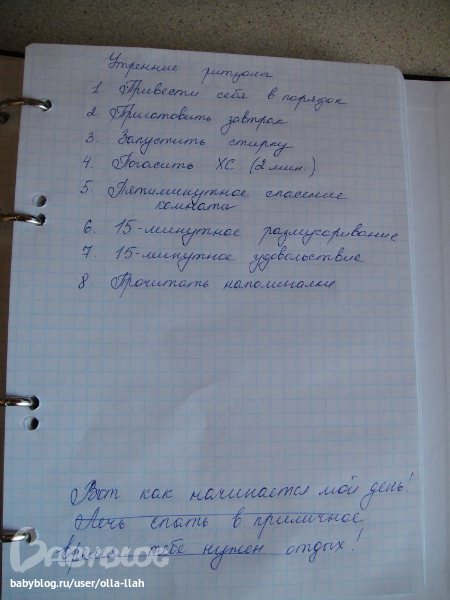 Утренние ритуалы
1 Привести себя в порядок
2. Приготовить завтрак
3. Запустить стирку
4. Погасить ХС (2 мин.)
5. Пятиминутное спасение
комнаты
6. 15-минутное размусоривание
7. 15-минутное удовольствие
8. Прочитать напоминалки
Вот как начинается мой день!
Лечь спать в приличное
время тебе нужен отдых!
BABYBLOG
babyblog.ru/user/olla-llah